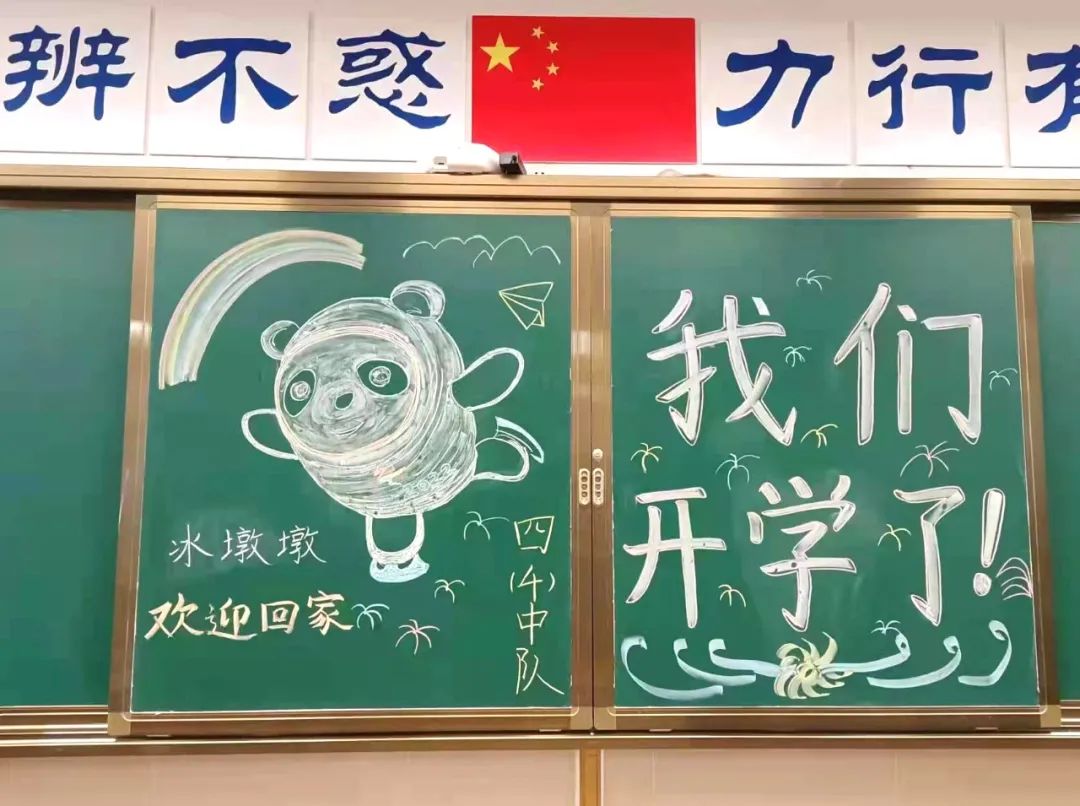 辨不惑 力行有
冰墩墩
欢迎回家
四(4)中队
我们
开学了!